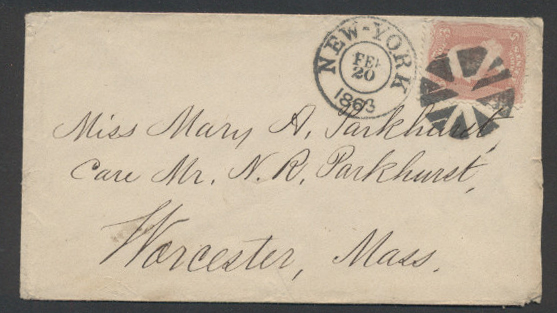 NEW-YORK
FEB
20
1863
Miss Mary A. Parkhurst,
Care Mr. N. R. Parkhurst,
Worcester, Mass.